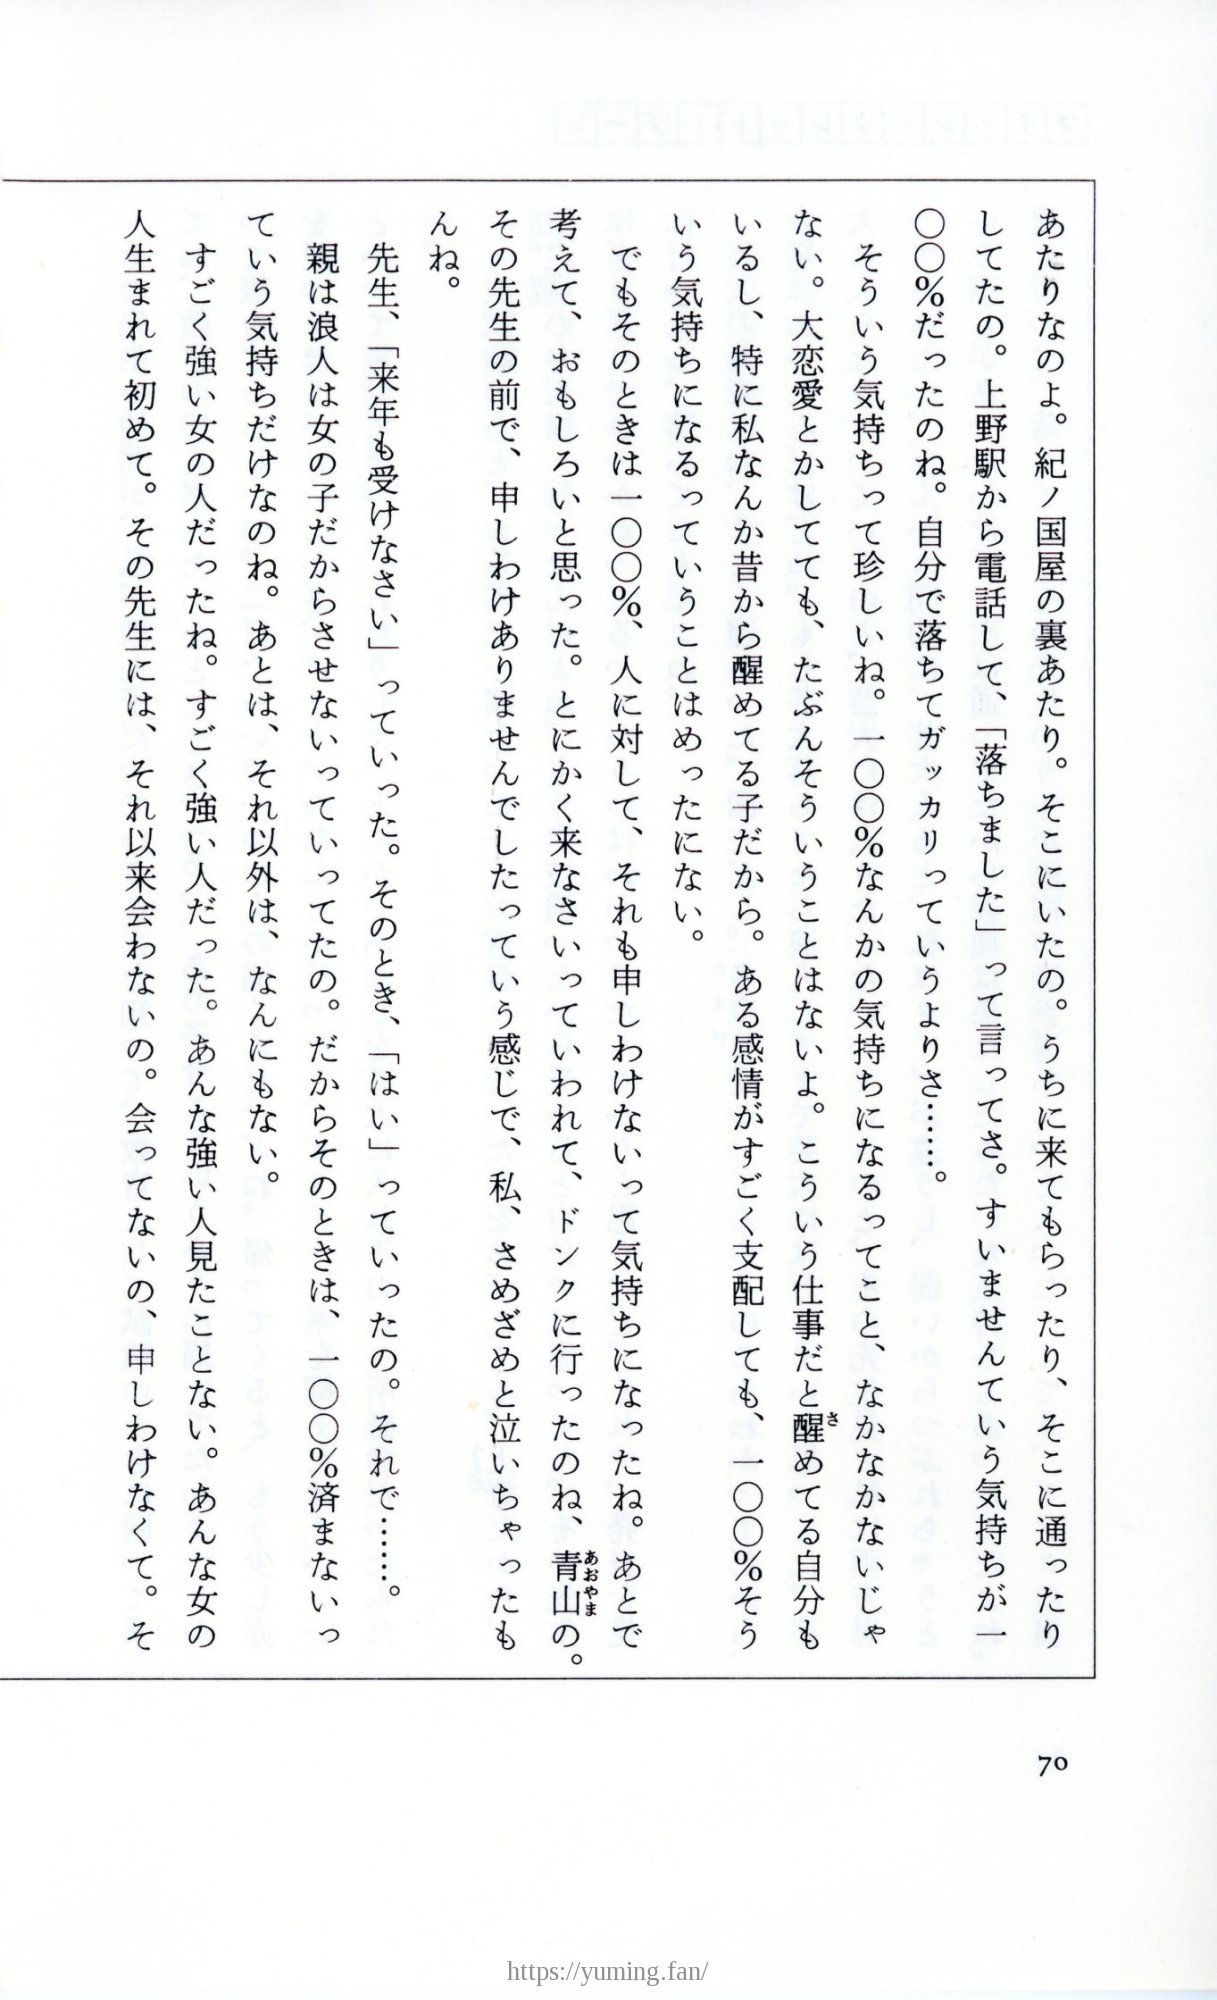 あたりなのよ。紀ノ国屋の裏あたり。そこにいたの。うちに来てもらったり、そこに通ったり
してたの。上野駅から電話して、「落ちました」って言ってさ。すいませんていう気持ちが一
〇〇%だったのね。自分で落ちてガッカリっていうよりさ……。
そういう気持ちって珍しいね。一〇〇%なんかの気持ちになるってこと、なかなかないじゃ
ない。大恋愛とかしてても、たぶんそういうことはないよ。こういう仕事だと醒めてる自分も
いるし、特に私なんか昔から醒めてる子だから。ある感情がすごく支配しても、一〇〇%そう
いう気持ちになるっていうことはめったにない。
でもそのときは一〇〇%、人に対して、それも申しわけないって気持ちになったね。あとで
考えて、おもしろいと思った。とにかく来なさいっていわれて、ドンクに行ったのね、青山の。
その先生の前で、申しわけありませんでしたっていう感じで、私、さめざめと泣いちゃったも
んね。
先生、「来年も受けなさい」っていった。そのとき、「はい」っていったの。それで……。
親は浪人は女の子だからさせないっていってたの。だからそのときは、一〇〇%済まないっ
ていう気持ちだけなのね。あとは、それ以外は、なんにもない。
すごく強い女の人だったね。すごく強い人だった。あんな強い人見たことない。あんな女の
人生まれて初めて。その先生には、それ以来会わないの。会ってないの、申しわけなくて。そ
さ
あおやま
70
https://yuming.fan/